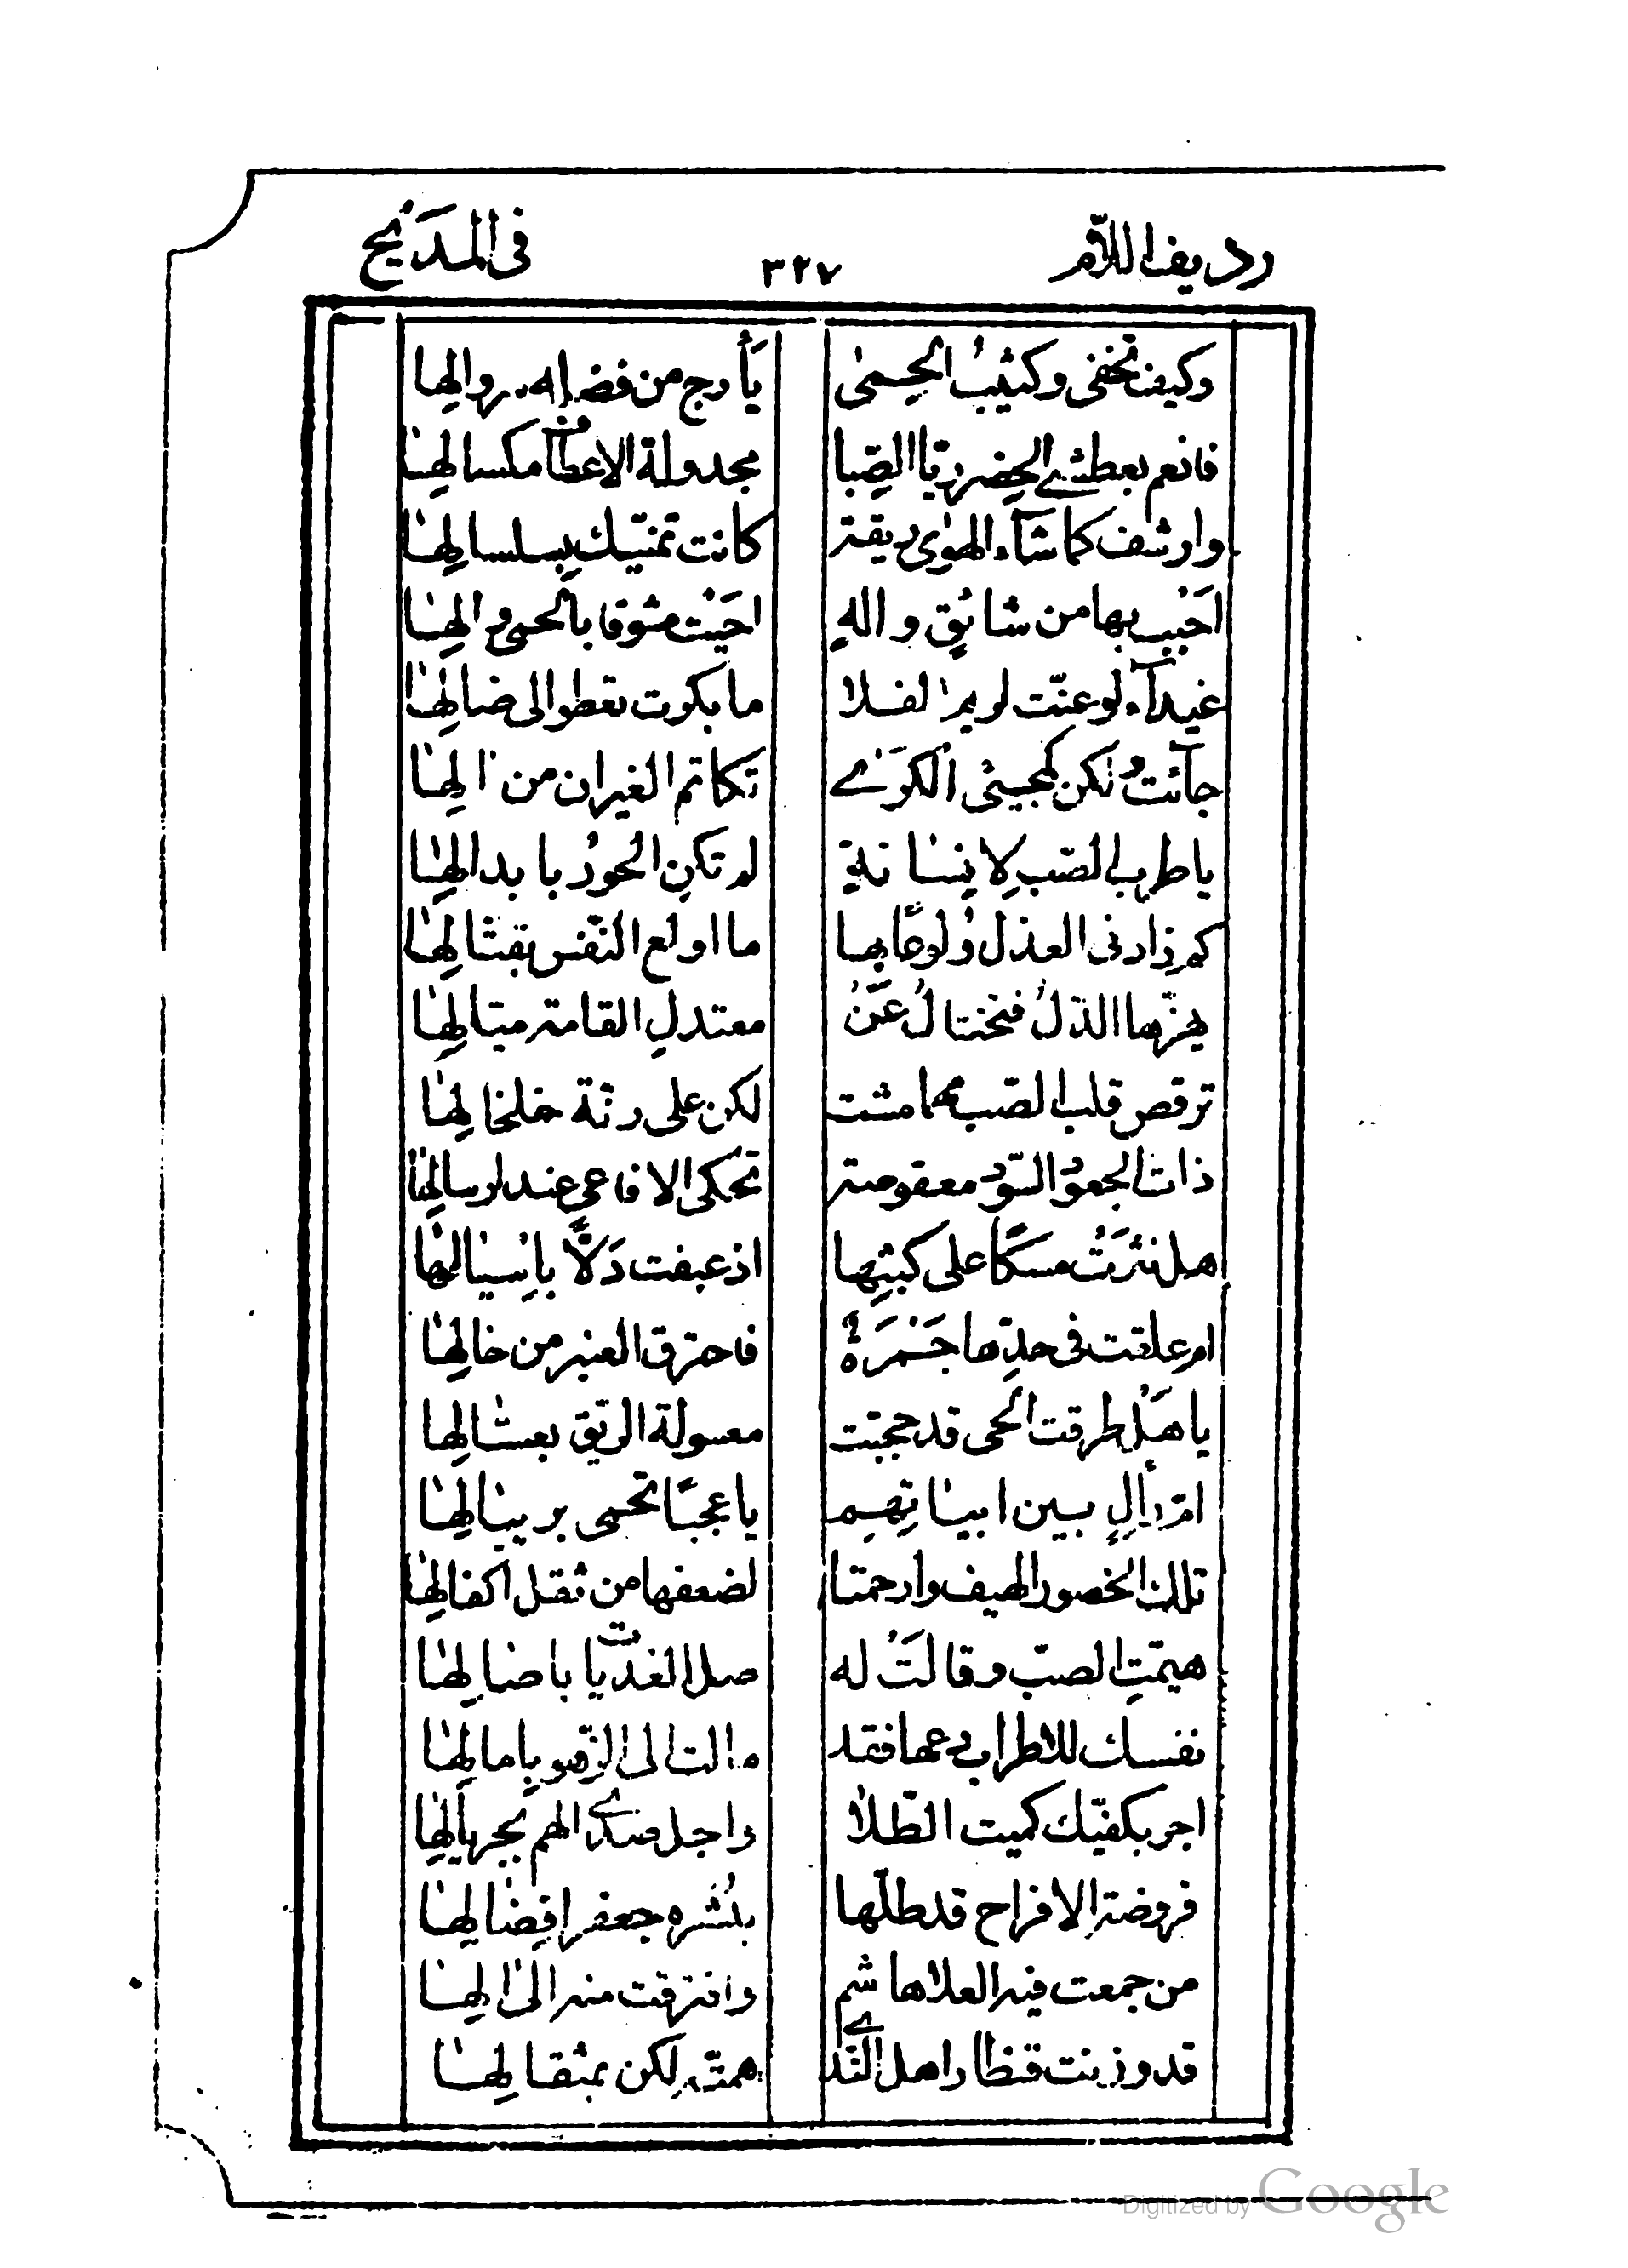 رديف اللام ٣٢٧ فى المديح
وكيف تخفى وكثيب الحمى يأرج من فضل
فانعم بعطفى مجدولة الاعطاف مكسالها
وارشف كما شآء الهوى ريقة كانت تمنيك بسلسالها
احبب بها من شائق واله احيت مشوقا بالحمى والها
غيدآء لو عنت لريم الفلا ما بكرت تعطو الى ضالها
جآئت ولكن كمجيئ الكرى تكاتم الغيران من الها
يا طرب الصب لانسانة لم تكن الحور بابدالها
كم زادنى العذل ولوعا بها ما اولع النفس بقتالها
يهزها الدل فتختال عن معتدل القامة ميالها
ترقص قلب الصب مهما مشت لكن على رنة خلخالها
ذات الجعود السود معقوصة تحكى الافاعى عند ارسالها
هل نثرت مسكا على كثبها اذ عبقت دلا باسبالها
ام علقت فى خدها جمرة فاحترق العنبر من خالها
يا هل طرقت الحى قد حجبت معسولة الريق بعسالها
ام ريم ال بين ابياتهم يا عجبا تحمى بريبالها
تلك الخصور الهيف وارحمتا لضعفها من ثقل اكفالها
هيمت الصب وقالت له صل الغديات باصالها
نفسك للاطراب دعها فقد مالت الى الزهو بامالها
اجر بكفيك كميت الطلا واجل صدى الهم بجريالها
فروضة الافراح قد طلها بنشره جعفر افضالها
من جمعت فيه العلا هاشم وافترقت منه الى الها
قد وزنت قنطار اهل الندى همته لكن بمثقالها
Digitized by Google